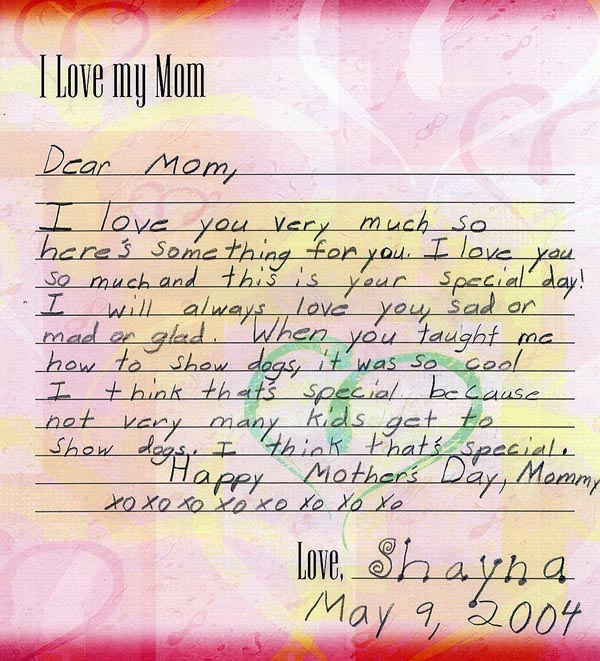 I Love my Mom
Dear Mom,
I love you very much so
here's something for you. I love you
so much and this is your special day!
I will always love you, sad or
mad or glad. When you taught me
how to show dogs, it was so cool
I think that's special because
not very many kids get to
show dogs. I think that's special.
Happy Mother's Day, Mommy
xo xo xo xo xo xo xo xo
Love, Shayna
May 9, 2004